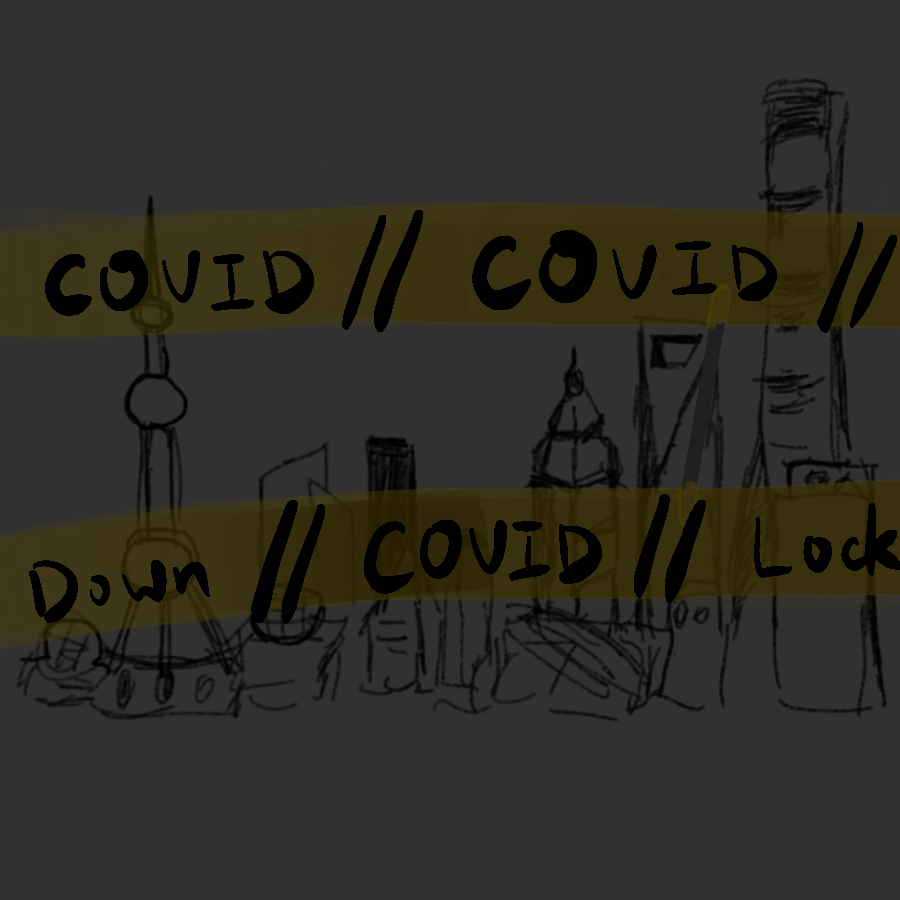 COVID // COVID //
Down // COVID // Lock